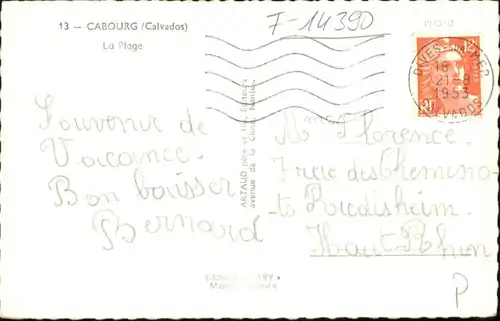 13 — CABOURG (Calvados)
La Plage
F-14390
18
21-8
1953
CALVADOS
Souvenir de
Vacance.
Bon baisser
Bernard
ARTAUD père et fils
avenue de la
Nantes
Mme Florence.
des Chemino-
ts Riedisheim
Haut Rhin
P